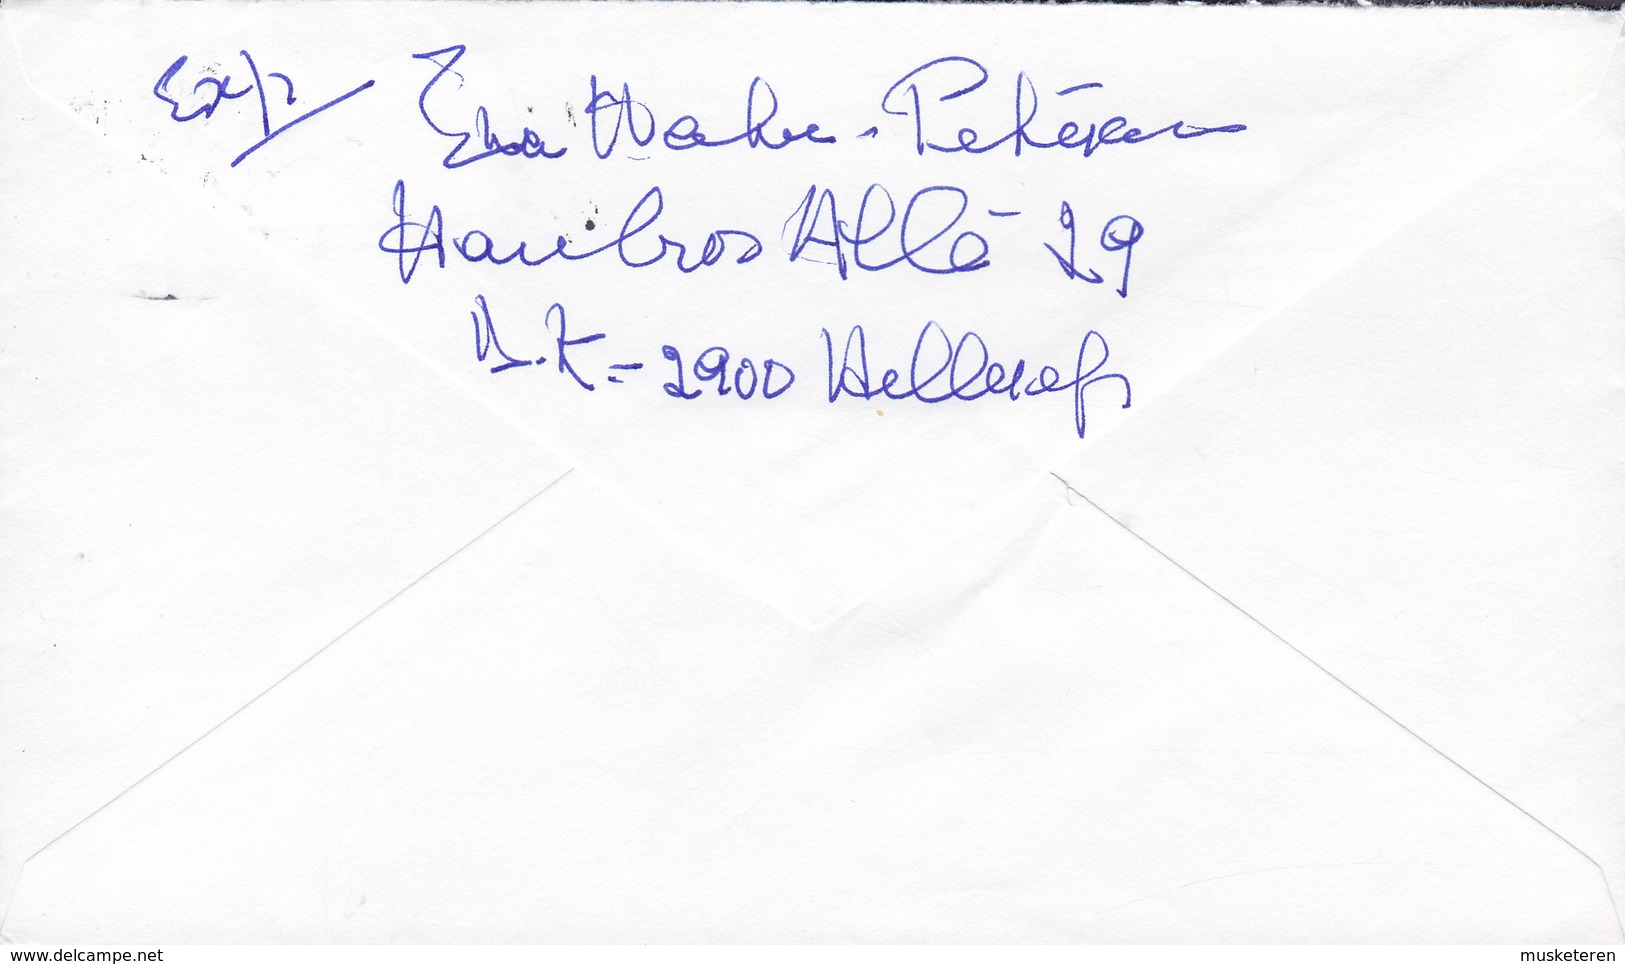 Exp/ Eva Hahn-Petersen
Hambros Allé 29
D.K=-2900 Hellerup
www.delcampe.net
musketeren